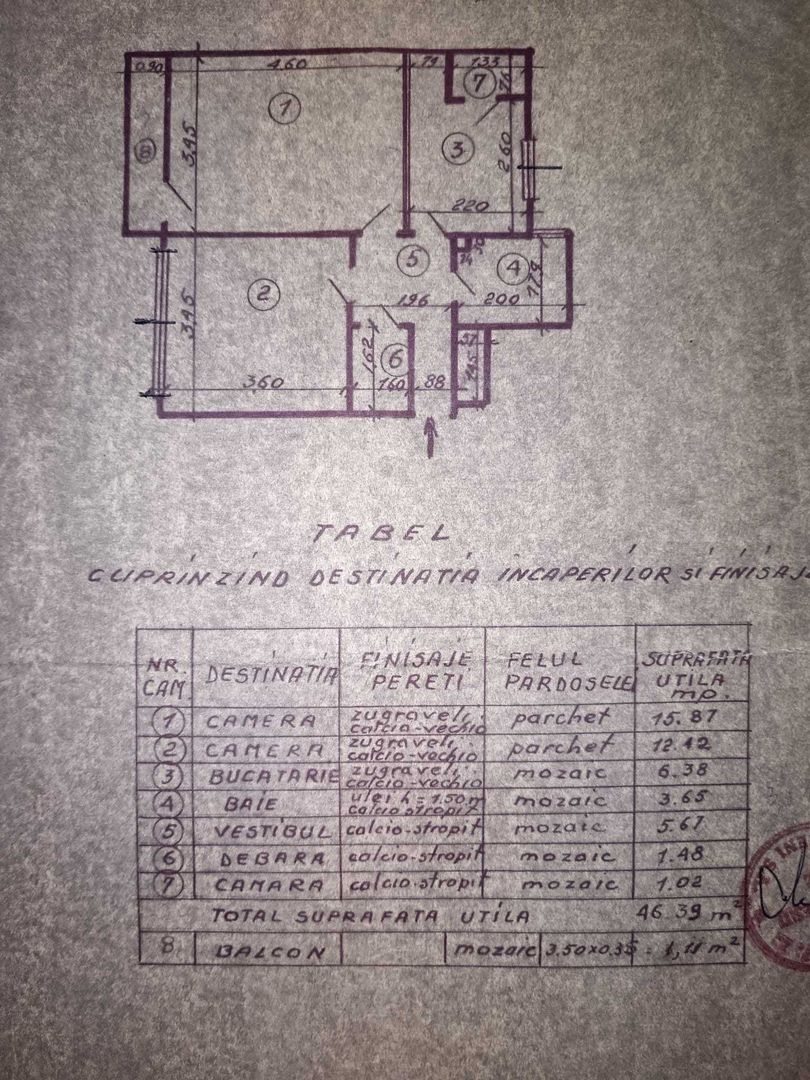 0.90 4.60 79 1.35
7 76
1
3.45
8
3
2.60
220
5
74 50
4
179
2
3.45
196 200
162
6
57
145
3.60
160 88
TABEL
CUPRINZIND DESTINATIA INCAPERILOR SI FINISAJ
NR. CAM DESTINATIA FINISAJE PERETI FELUL PARDOSELEI SUPRAFATA UTILA mp.
1 CAMERA zugraveli, calcio-vechio parchet 15.87
2 CAMERA zugraveli, calcio-vechio parchet 12.42
3 BUCATARIE zugraveli, calcio-vechio mozaic 6.38
4 BAIE ulei h=1.50m calcio stropit mozaic 3.65
5 VESTIBUL calcio-stropit mozaic 5.67
6 DEBARA calcio-stropit mozaic 1.48
7 CAMARA calcio.stropit mozaic 1.02
TOTAL SUPRAFATA UTILA 46.39 m²
8 BALCON mozaic 3.50x0.35 = 1,11 m²